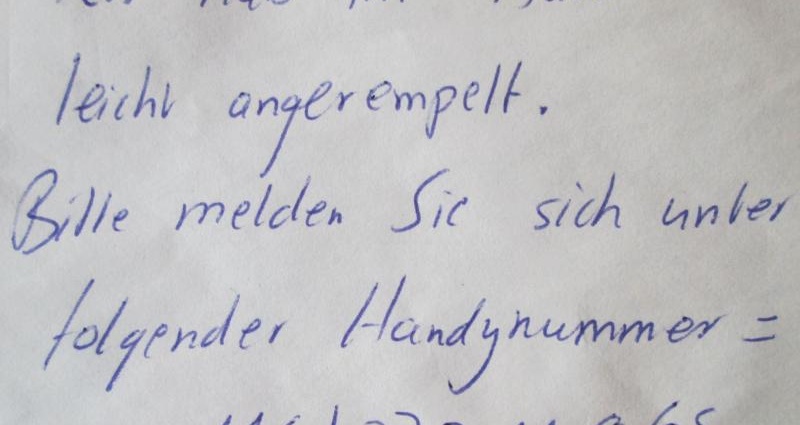 leicht angerempelt.
Bitte melden Sie sich unter
folgender Handynummer =